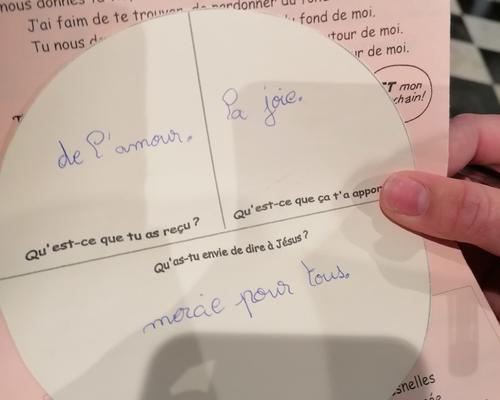 nous
J'ai faim de te trouver
fond de moi.
Tu nous
tour de moi.
ur de moi.
ET mon
chain!
de l'amour.
la joie.
Qu'est-ce que tu as reçu ?
Qu'est-ce que ça t'a appor
Qu'as-tu envie de dire à Jésus ?
mercie pour tous.
snelles